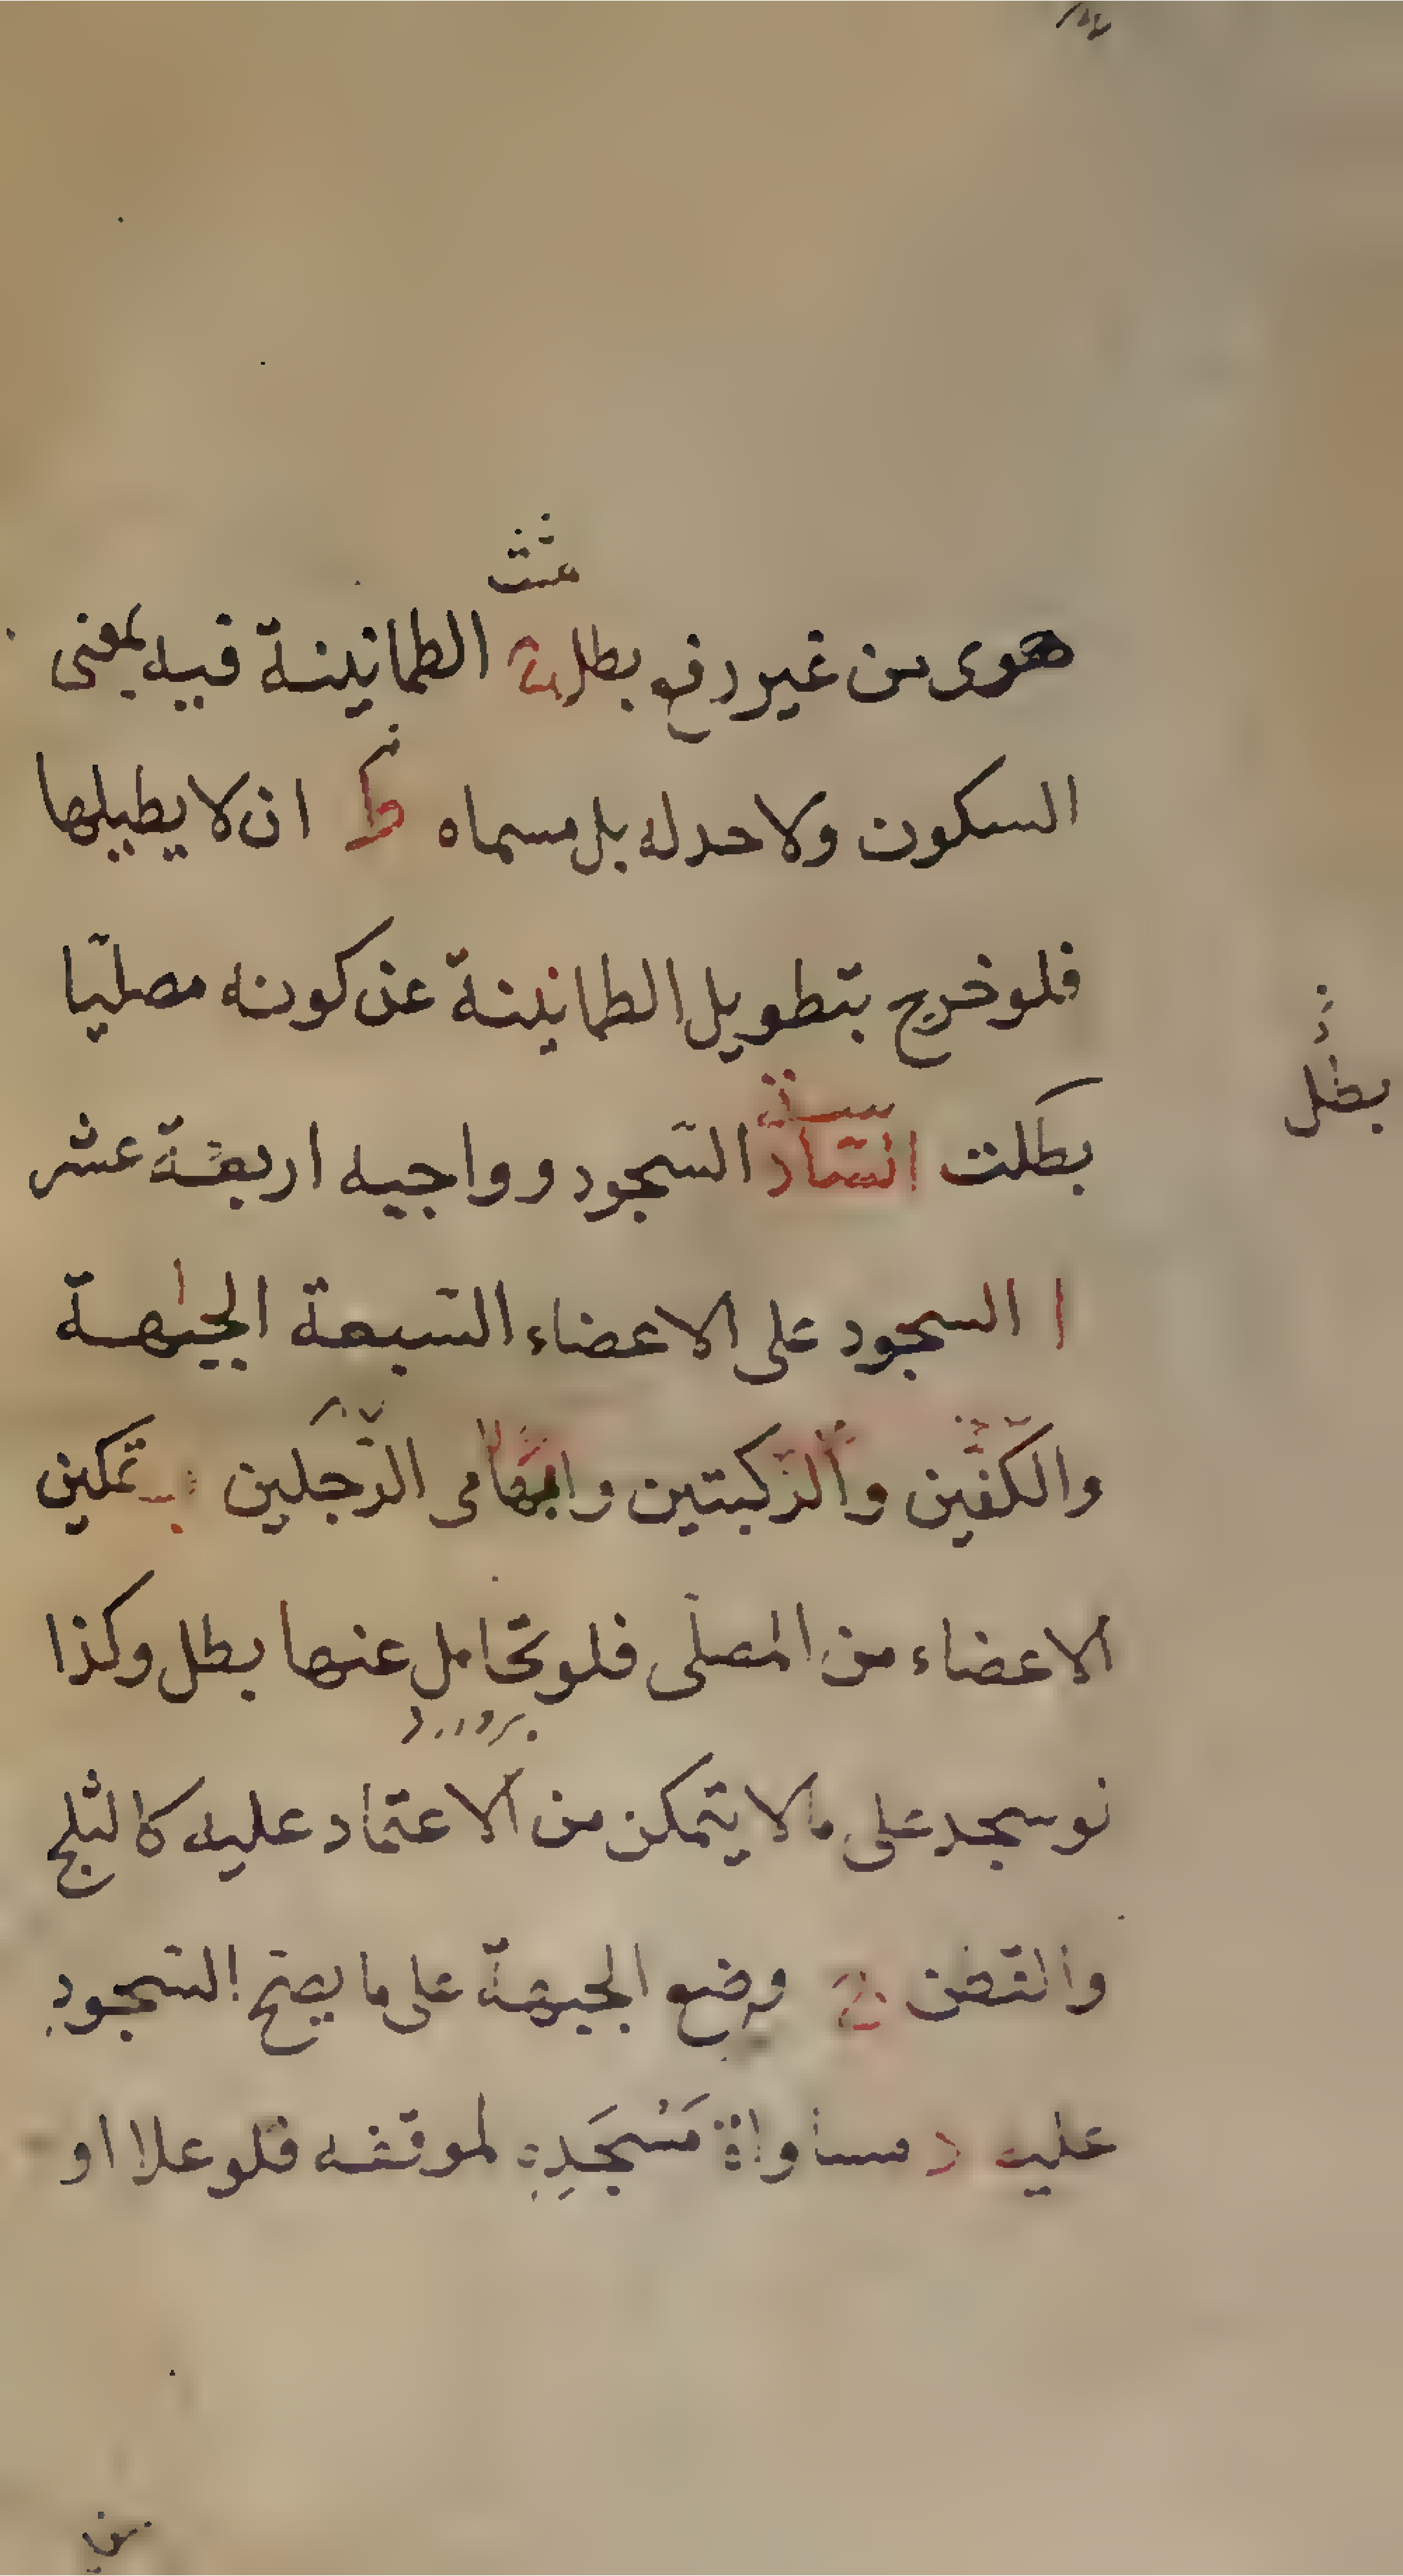 هوى من غير رفع بطل الطمانينة فيه بمعنى
السكون ولا حد له بل مسماه ط ان لا يطيلها
فلو خرج بتطويل الطمانينة عن كونه مصليّا
بطل
بطلت السّادسة السّجود وواجبه اربعة عشر
ا السجود على الاعضاء السّبعة الجبهة
والكفّين والرّكبتين وابهامى الرّجلين ب تمكين
الاعضاء من المصلّى فلو تحامل عنها بطل وكذا
لو سجد على ما لا يتمكن من الاعتماد عليه كالثلج
والقطن ج وضع الجبهة على ما يصحّ السّجود
عليه د مساواة مَسْجَدِه لموقفه فلو علا او